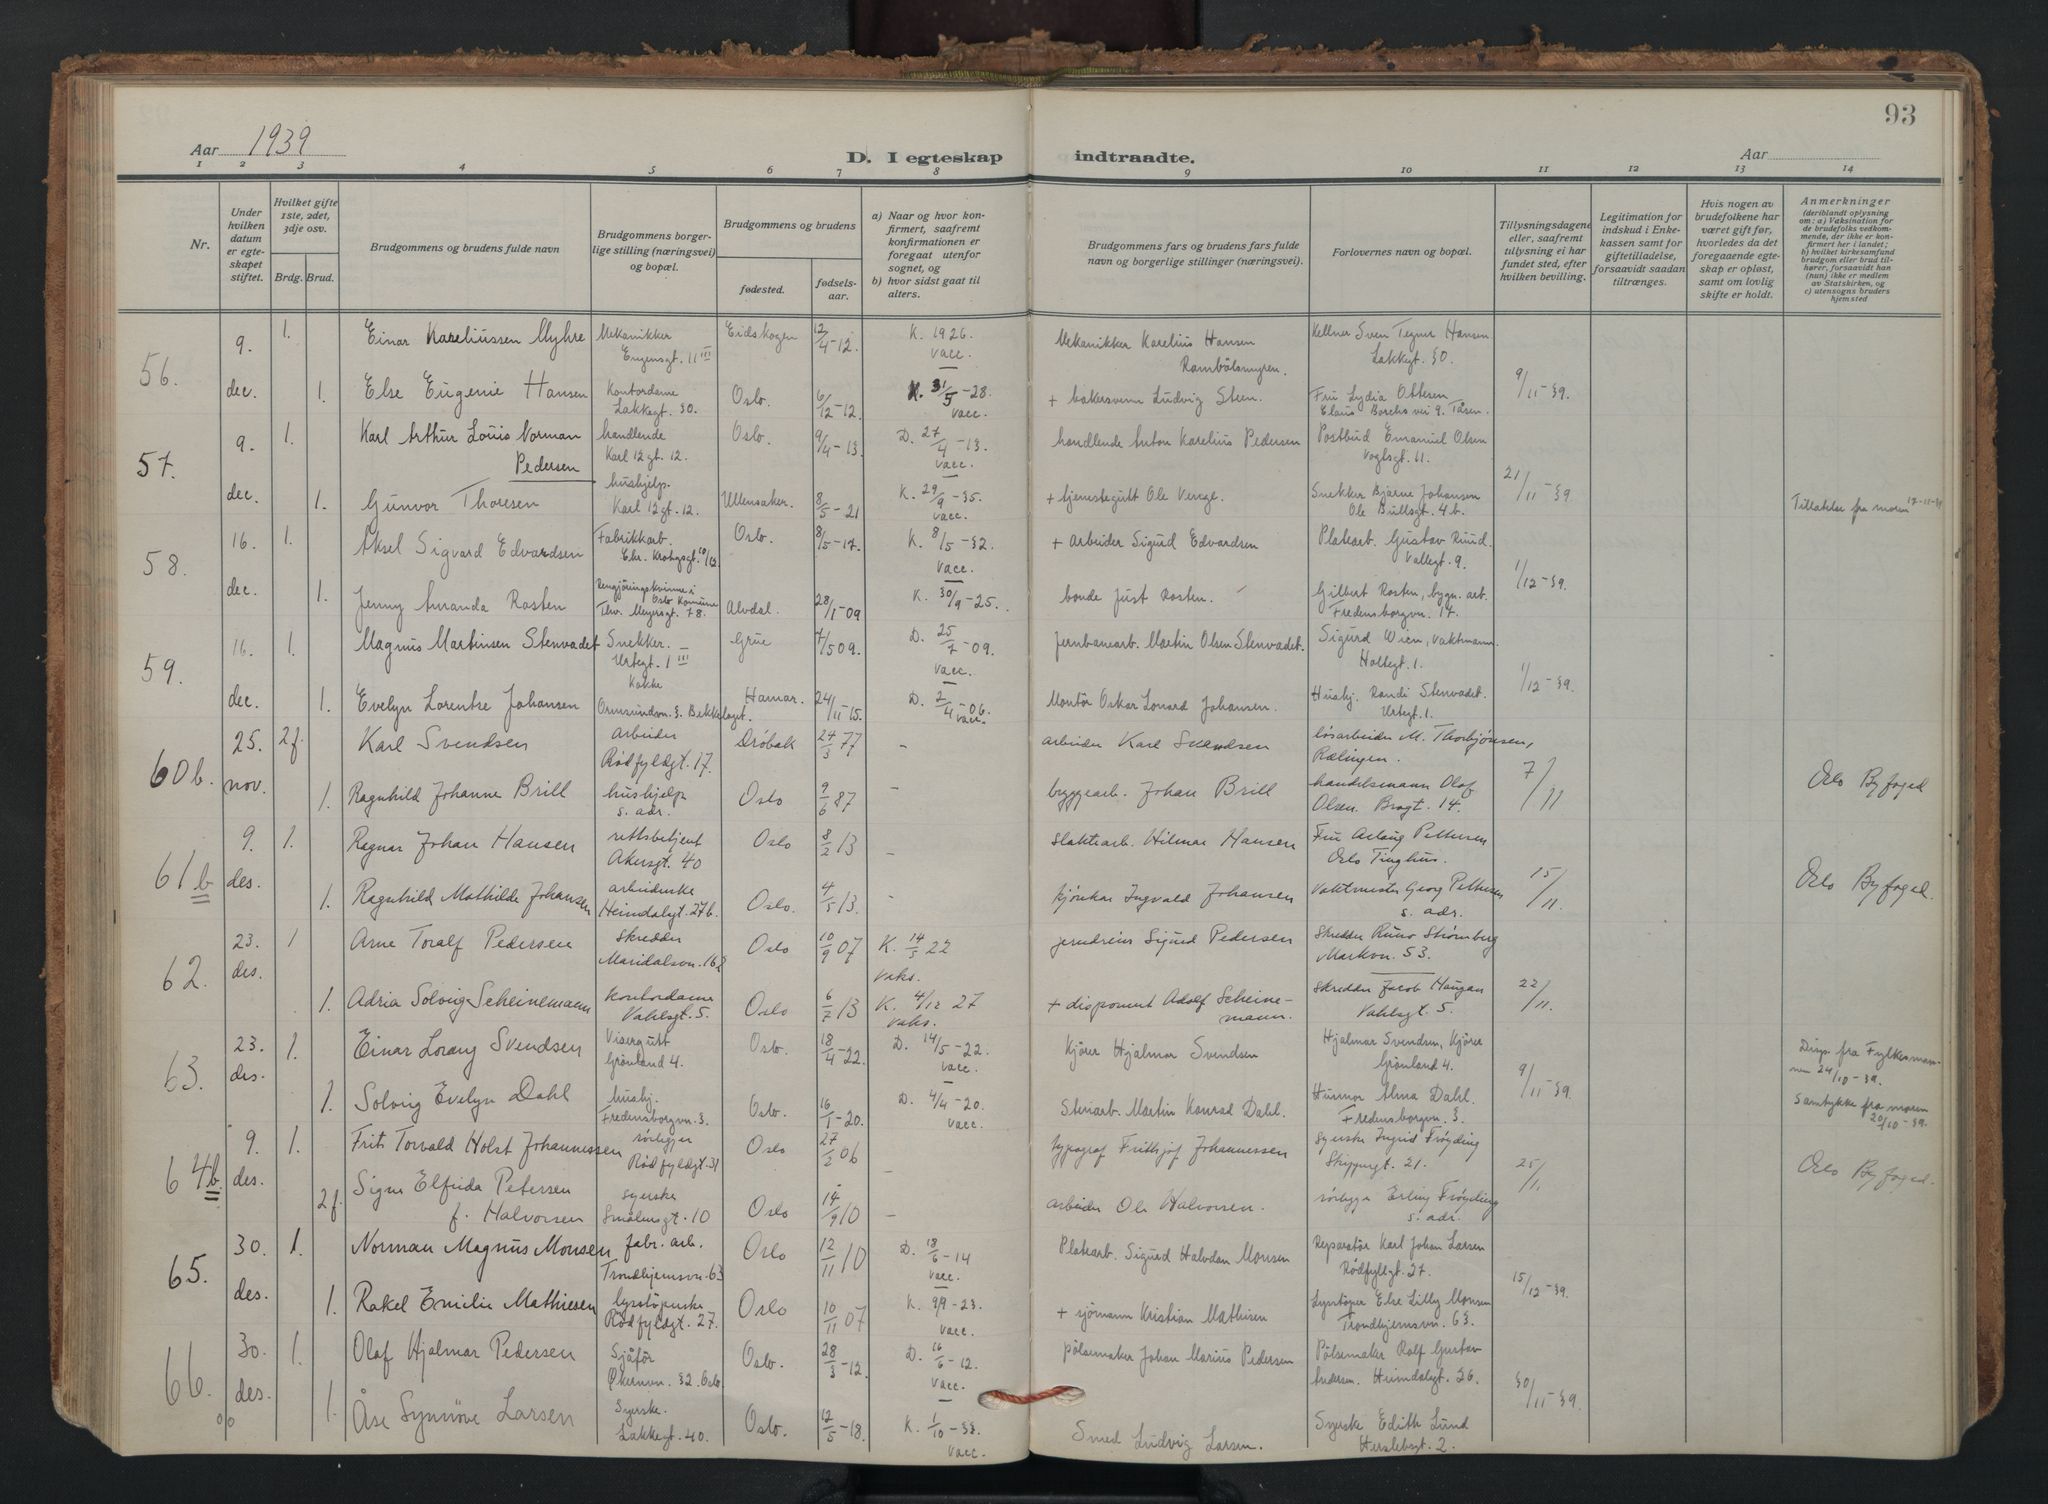 93
Aar 1939
D. I egteskap indtraadte.
Aar
1 2 3 4 5 6 7 8 9 10 11 12 13 14
Nr.
Under hvilken datum er egteskapet stiftet.
Hvilket gifte 1ste, 2det, 3dje osv.
Brdg. Brud.
Brudgommens og brudens fulde navn
Brudgommens borgerlige stilling (næringsvei) og bopæl.
Brudgommens og brudens
fødested.
fødselsaar.
a) Naar og hvor konfirmert, saafremt konfirmationen er foregaat utenfor sognet, og
b) hvor sidst gaat til alters.
Brudgommens fars og brudens fars fulde navn og borgerlige stillinger (næringsvei).
Forlovernes navn og bopæl.
Tillysningsdagene eller, saafremt tillysning ei har fundet sted, efter hvilken bevilling.
Legitimation for indskud i Enkekassen samt for giftetilladelse, forsaavidt saadan tiltrænges.
Hvis nogen av brudefolkene har været gift før, hvorledes da det foregaaende egteskap er opløst, samt om lovlig skifte er holdt.
Anmerkninger
(deriblandt oplysning om: a) Vaksination for de brudefolks vedkommende, der ikke er konfirmert her i landet; b) hvilket kirkesamfund brudgom eller brud tilhører, forsaavidt han (hun) ikke er medlem av Statskirken, og c) utensogns bruders hjemsted
56. 9. dec. 1. Einar Kareliussen Myhre Mekanikker Eugensgt. 11 III Eidskogen 12/4-12. K. 1926. vacc. Mekanikker Karelius Hansen Kellner Sven Tegner Hansen Lakkegt. 30. 9/11-39.
1. Else Eugenie Hansen Kontordame Lakkegt. 30. Oslo. 6/12-12. K. 31/5-28. vacc. + bakersvenn Ludvig Steen Fru Lydia Ottesen Claus Borchs vei 9. Tåsen.
57. 9. dec. 1. Karl Arthur Louis Norman Pedersen handlende Karl 12 gt. 12. Oslo. 9/4-13. D. 27/4-13. vacc. handlende Anton Karelius Pedersen Postbud Emanuel Olsen Voglsgt. 11. 21/11-39.
1. Gunvor Thoresen hushjelp. Karl 12 gt. 12. Ullensaker. 8/5-21 K. 29/9-35. vacc. + tjenestegutt Ole Venge. Snekker Bjarne Johansen Ole Bullsgt. 4 b. Tillatelse fra moren 17-11-39
58. 16. dec. 1. Aksel Sigvard Edvardsen Fabrikkarb. Chr. Krohgsgt. Oslo. 8/5-17. K. 8/5-32. vacc. + arbeider Sigurd Edvardsen Platearb. Gustav Ruud. Vallegt. 9. 1/12-39.
1. Jenny Amanda Rosten Rengjøringskvinne i Oslo Komune Thv. Meyersgt. 78. Alvdal. 28/1-09 K. 30/9-25. bonde Just Rosten. Gilbert Rosten, bygn. arb. Fredensborgvn. 17.
59. 16. dec. 1. Magnus Martinsen Stenvadet Snekker. Urtegt. 1 III Grue 7/5 09. D. 25/7-09. vacc. Jernbanearb. Martin Olsen Stenvadet. Sigurd Wien, vaktmann. Holtegt. 1. 1/12-39.
1. Evelyn Lorentse Johansen Kokke Ormsundvn. 3. Bekkelaget. Hamar. 24/11-15. D. 2/4-06. vacc. Montör Oskar Lonard Johansen. Hushj. Randi Stenvadet. Urtegt. 1.
60b. 25. nov. 2f. Karl Svendsen arbeider Rødfyldgt. 17. Drøbak 24/3 77 - arbeider Karl Svendsen løsarbeider M. Thorbjönsen, Rælingen. 7/11
1. Ragnhild Johanne Brill hushjelp s. adr. Oslo 9/6 87 - byggearb. Johan Brill handelsmann Olaf Olsen. Brogt. 14. Oslo Byfoged
61b 9. des. 1. Ragnar Johan Hansen rettsbetjent Akersgt. 40 Oslo 8/2 13 - Slaktearb. Hilmar Hansen Fru Aslaug Pettersen Oslo Tinghus. 15/11.
1. Ragnhild Mathilde Johansen arbeiderske Heimdalsgt. 27b. Oslo. 4/5 13. - kjørekar Ingvald Johansen Vaktmester Georg Pettersen s. adr. Oslo Byfoged.
62. 23. des. 1 Arne Toralf Pedersen Skredder Maridalsvn. 162 Oslo 10/9 07 K. 14/5 22 vaks. jerndreier Sigurd Pedersen Skredder Runo Strömberg Markvn. 53. 22/11.
1. Adria Solveig Scheinemann kontordame Vahlsgt. 5. Oslo 6/7 13 K. 4/12 27 vaks. + disponent Adolf Scheinemann. Skredder Jacob Haugan Vahlsgt. 5.
63. 23. des. 1. Einar Lorang Svendsen Visergutt Grönland 4. Oslo. 18/4-22. D. 14/5-22. vacc. Kjörer Hjalmar Svendsen Hjalmar Svendsen, Kjörer Grönland 4. 9/11-39. Disp. fra Fylkesmannen 24/10-39.
1. Solvig Evelyn Dahl hushj. Fredensborgvn. 3. Oslo. 16/1-20. D. 4/4-20. vacc. Stenarb. Martin Konrad Dahl. Husmor Alma Dahl. Fredensborgvn. 3. Samtykke fra moren 20/10-39.
64b. 9. des. 1. Frits Torvald Holst Johannessen rörlegger Rødfyldgt. 31 Oslo 27/2 06 - typograf Frithjof Johannessen syerske Ingrid Fröyding Skippergt. 21. 25/11. Oslo Byfoged.
2f. Signe Elfrida Petersen f. Halvorsen syerske Smålensgt. 10 Oslo 14/9 10 - arbeider Ole Halvorsen. rörlegger Erling Fröyding s. adr.
65. 30. des. 1. Norman Magnus Monsen fabr. arb. Trondhjemsvn. 63 Oslo 12/11 10 D. 18/6-14 vacc. Platearb. Sigurd Halvdan Monsen Reparatör Karl Johan Larsen Rødfyllgt. 27. 15/12-39.
1. Rakel Emilie Mathiesen lysstöperske Rødfyldgt. 27. Oslo 10/11 07 K. 9/9-23. vacc. + sjömann Kristian Mathisen Lysstöper Else Lilly Monsen Trondhjemsvn. 63.
66. 30. des. 1. Olaf Hjalmar Pedersen Sjåför Økernvn. 32. Oslo Oslo. 28/3-12. D. 16/6-12. vacc. pölsemaker Johan Marius Pedersen Pölsemaker Rolf Gustav Andersen. Heimdalsgt. 26. 30/11-39.
1. Åse Synnöve Larsen Syerske. Lakkegt. 40. Oslo. 12/5-18. K. 1/10-33. vacc. Smed Ludvig Larsen. Syerske Edith Lund Herslebsgt. 2.